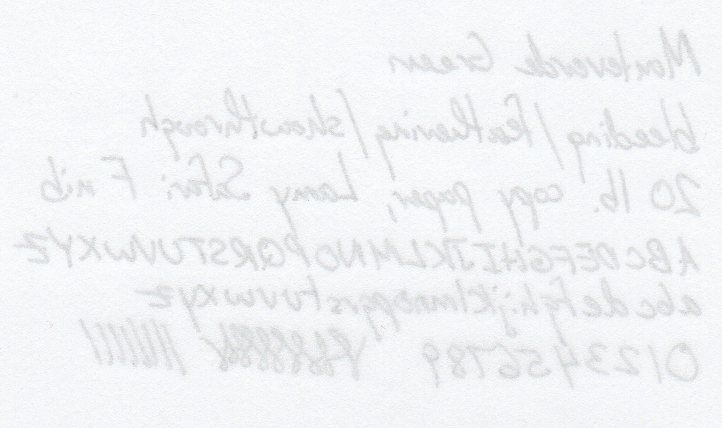 Monteverde Green
bleeding/feathering/showthrough
20 lb. copy paper, Lamy Safari F nib
ABCDEFGHIJKLMNOPQRSTUVWXYZ
abcdefghijklmnopqrstuvwxyz
0123456789